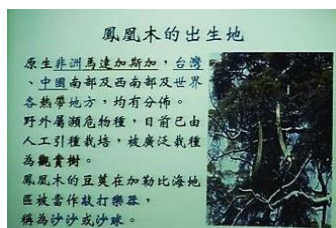 鳳凰木的出生地
原生非洲馬達加斯加，台灣
、中國南部及西南部及世界
各熱帶地方，均有分佈。
野外屬瀕危物種，目前已由
人工引種栽培，被廣泛栽種
為觀賞樹。
鳳凰木的豆莢在加勒比海地
區被當作敲打樂器，
稱為沙沙或沙球。